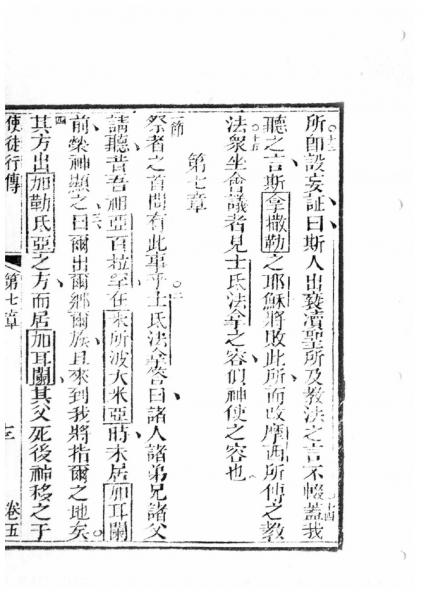 所即設妄証曰斯人出褻瀆聖所及教法之言不輟蓋我
十三
十四
聽之言斯拿撒勒之耶穌將敗此所而改摩西所傳之教
法衆坐會議者見士氏法拿之容似神使之容也
十五
第七章
一節
祭者之首問有此事乎士氏法拿答曰諸人諸弟兄諸父
二
請聽昔吾祖亞百拉罕在米所波大米亞時未居加耳闌
前榮神顯之曰爾出爾鄉爾族且來到我將指爾之地矣
三
其方出加勒氐亞之方而居加耳闌其父死後神移之于
四
使徒行傳
第七章
卷五